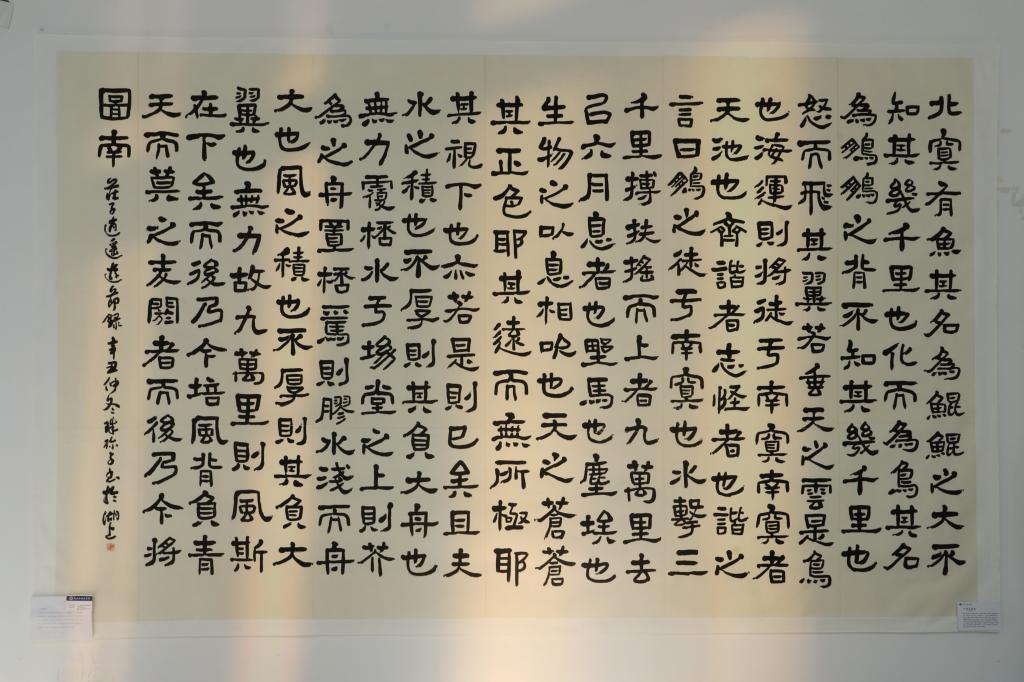 北冥有魚其名為鯤鯤之大不
知其幾千里也化而為鳥其名
為鵬鵬之背不知其幾千里也
怒而飛其翼若垂天之雲是鳥
也海運則將徒于南冥南冥者
天池也齊諧者志怪者也諧之
言曰鵬之徒于南冥也水擊三
千里摶扶搖而上者九萬里去
以六月息者也野馬也塵埃也
生物之以息相吹也天之蒼蒼
其正色耶其遠而無所極耶
其視下也亦若是則已矣且夫
水之積也不厚則其負大舟也
無力覆桮水于坳堂之上則芥
為之舟置桮焉則膠水淺而舟
大也風之積也不厚則其負大
翼也無力故九萬里則風斯
在下矣而後乃今培風背負青
天而莫之夭閼者而後乃今將
圖南
莊子逍遙遊節錄 辛丑仲冬 書於湖上